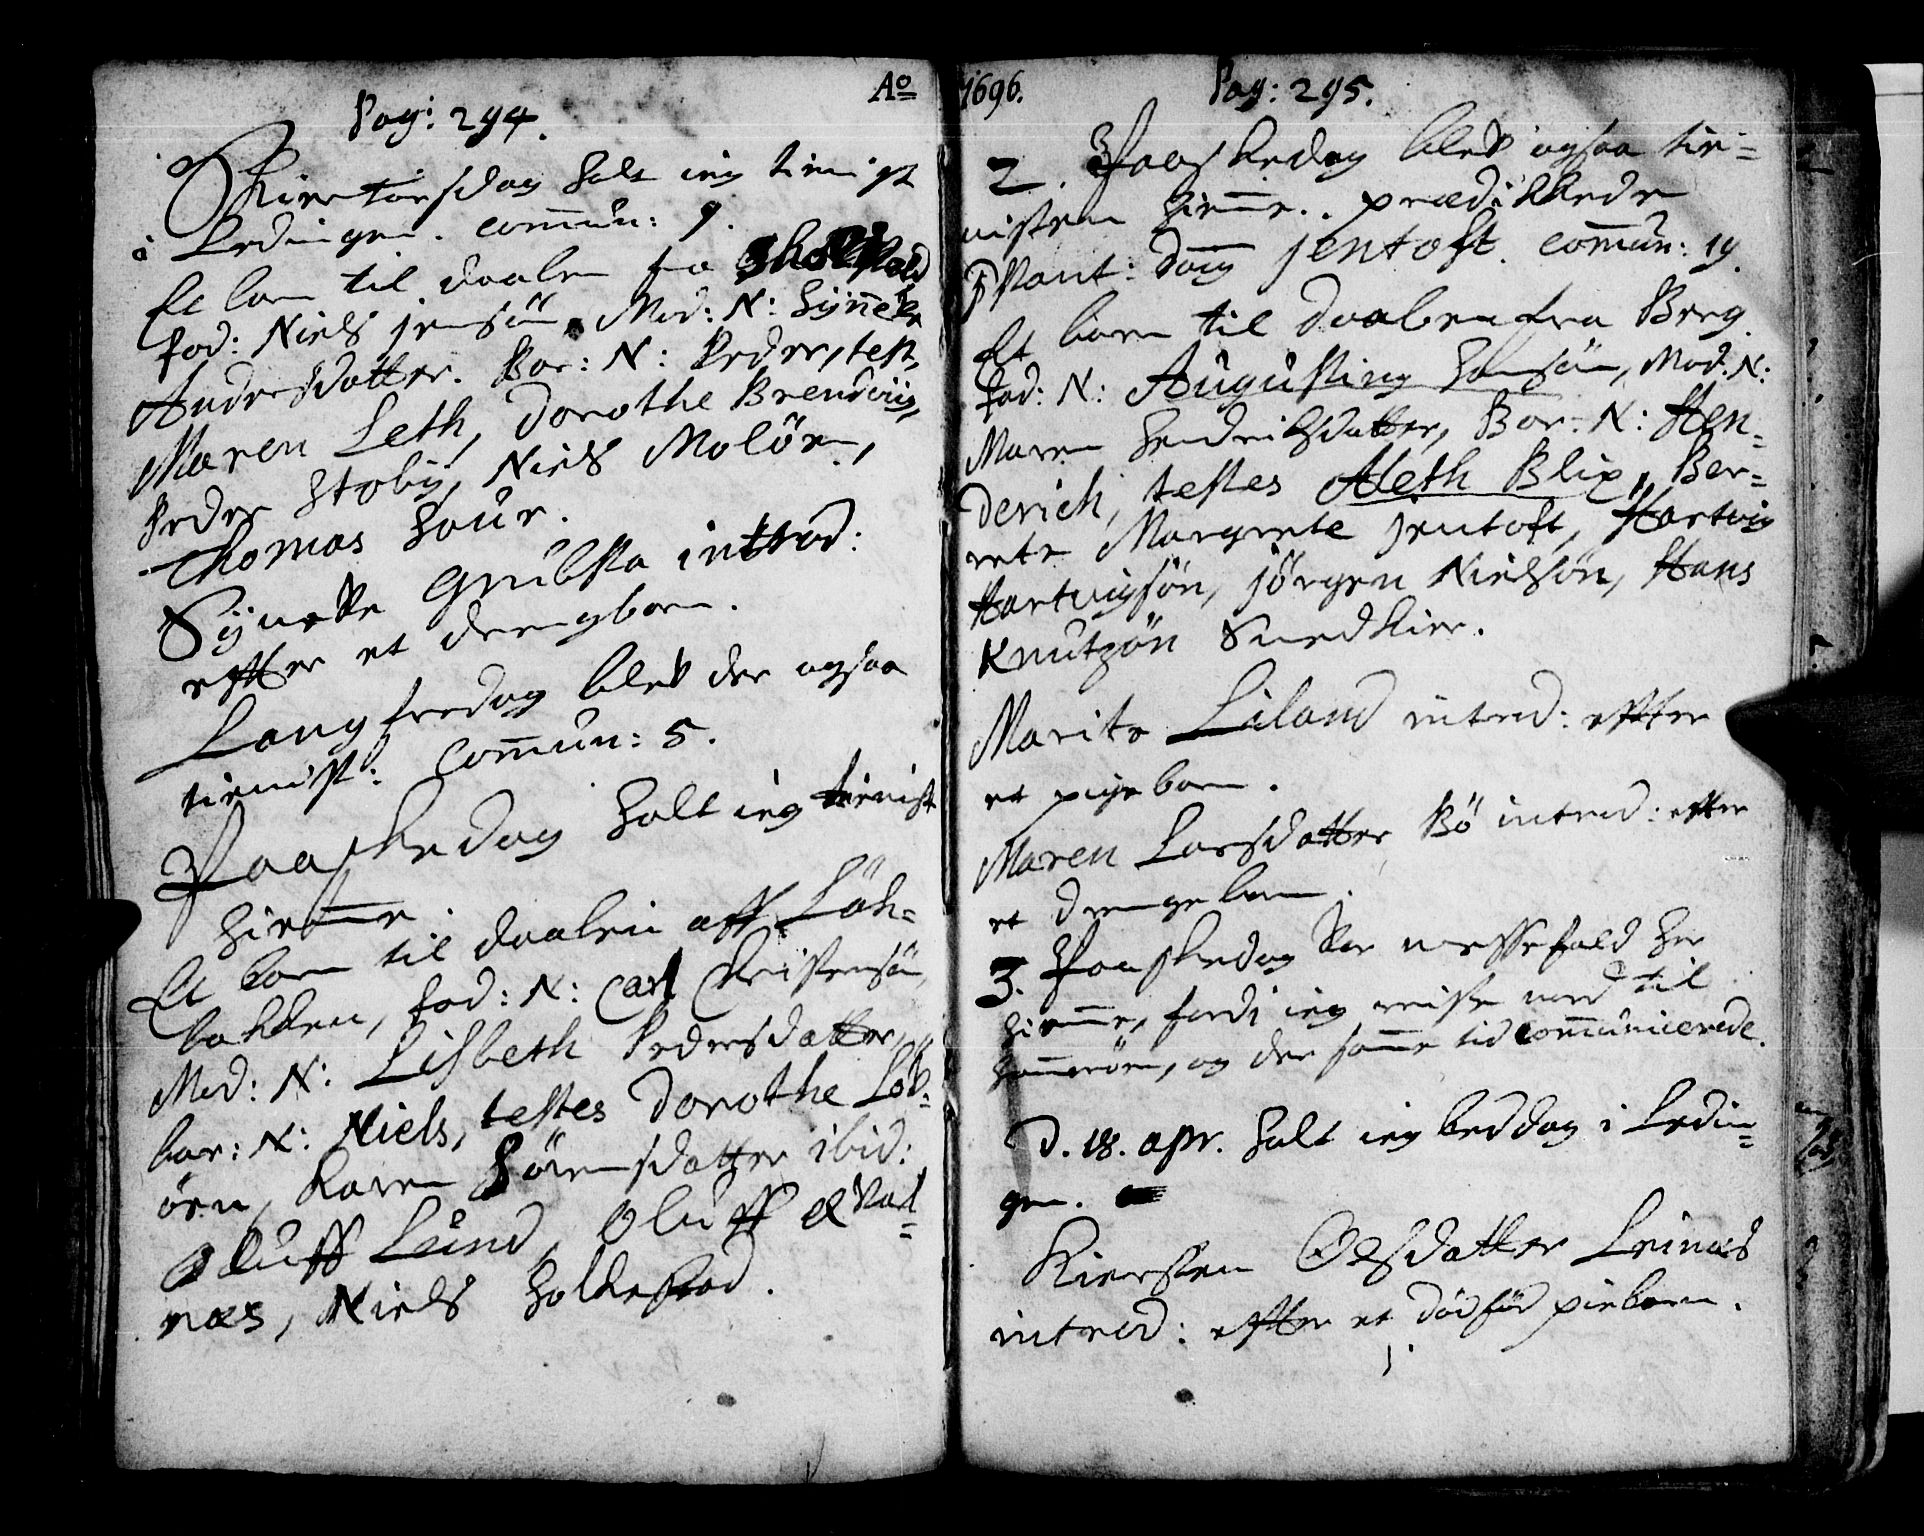 Pag: 294.
Aō
Skiertorsdag holt ieg tienist
i Ledingen. com̄un: 9.
Et barn til daaben fra
fad: Niels Jensøn, Mod: N: Synneke
Andersdatter. Bar: N: Peder, test,
Maren Leth, Dorothe Brendviig,
Peder Støbij, Niels Moløen,
Thomas Houe.
Synneke introd:
effter et drengbarn.
Langfredag blef der ogsaa
tienist: Com̄un: 5.
Paaskedag holt ieg tienist
hiem̄e.
Et barn til daaben aff Løk-
bakken, fad: N: Carl Christensøn,
Mod: N: Lisbeth Pedersdatter,
bar: N: Niels, testes Dorothe Løb-
øen, Karen Sørensdatter ibid:
Oluff Lund, Oluff
næs, Niels Holkestad.
1696.
Pag: 295.
2. Paaskedag blef ogsaa tie-
nisten hiem̄e. prædikkede
Jentoft. com̄un: 19.
Et barn til daaben fra Berg.
fad: N: Augusting Hansøn, Mod: N:
Maren Hendrichsdatter, Bar: N: Hen-
derich, testes Aleth Blix, Ber-
rete Margrete Jentoft, Hartvig
Hartvigsøn, Jørgen Nielsøn, Hans
Knutzøn Snedkier.
Marite Liland introd: effter
et pigebarn.
Maren Larsdatter Bø introd: effter
et drengebarn.
3. Paaskedag var messefald her
hiem̄e, fordi ieg reiste ned til
Ham̄erøen, og der sam̄e tid com̄unicerede.
D. 18. apr. holt ieg beddag i Ledin-
gen.
Kiersten Olsdatter Leinæs
introd: effter et dødfød piebarn.